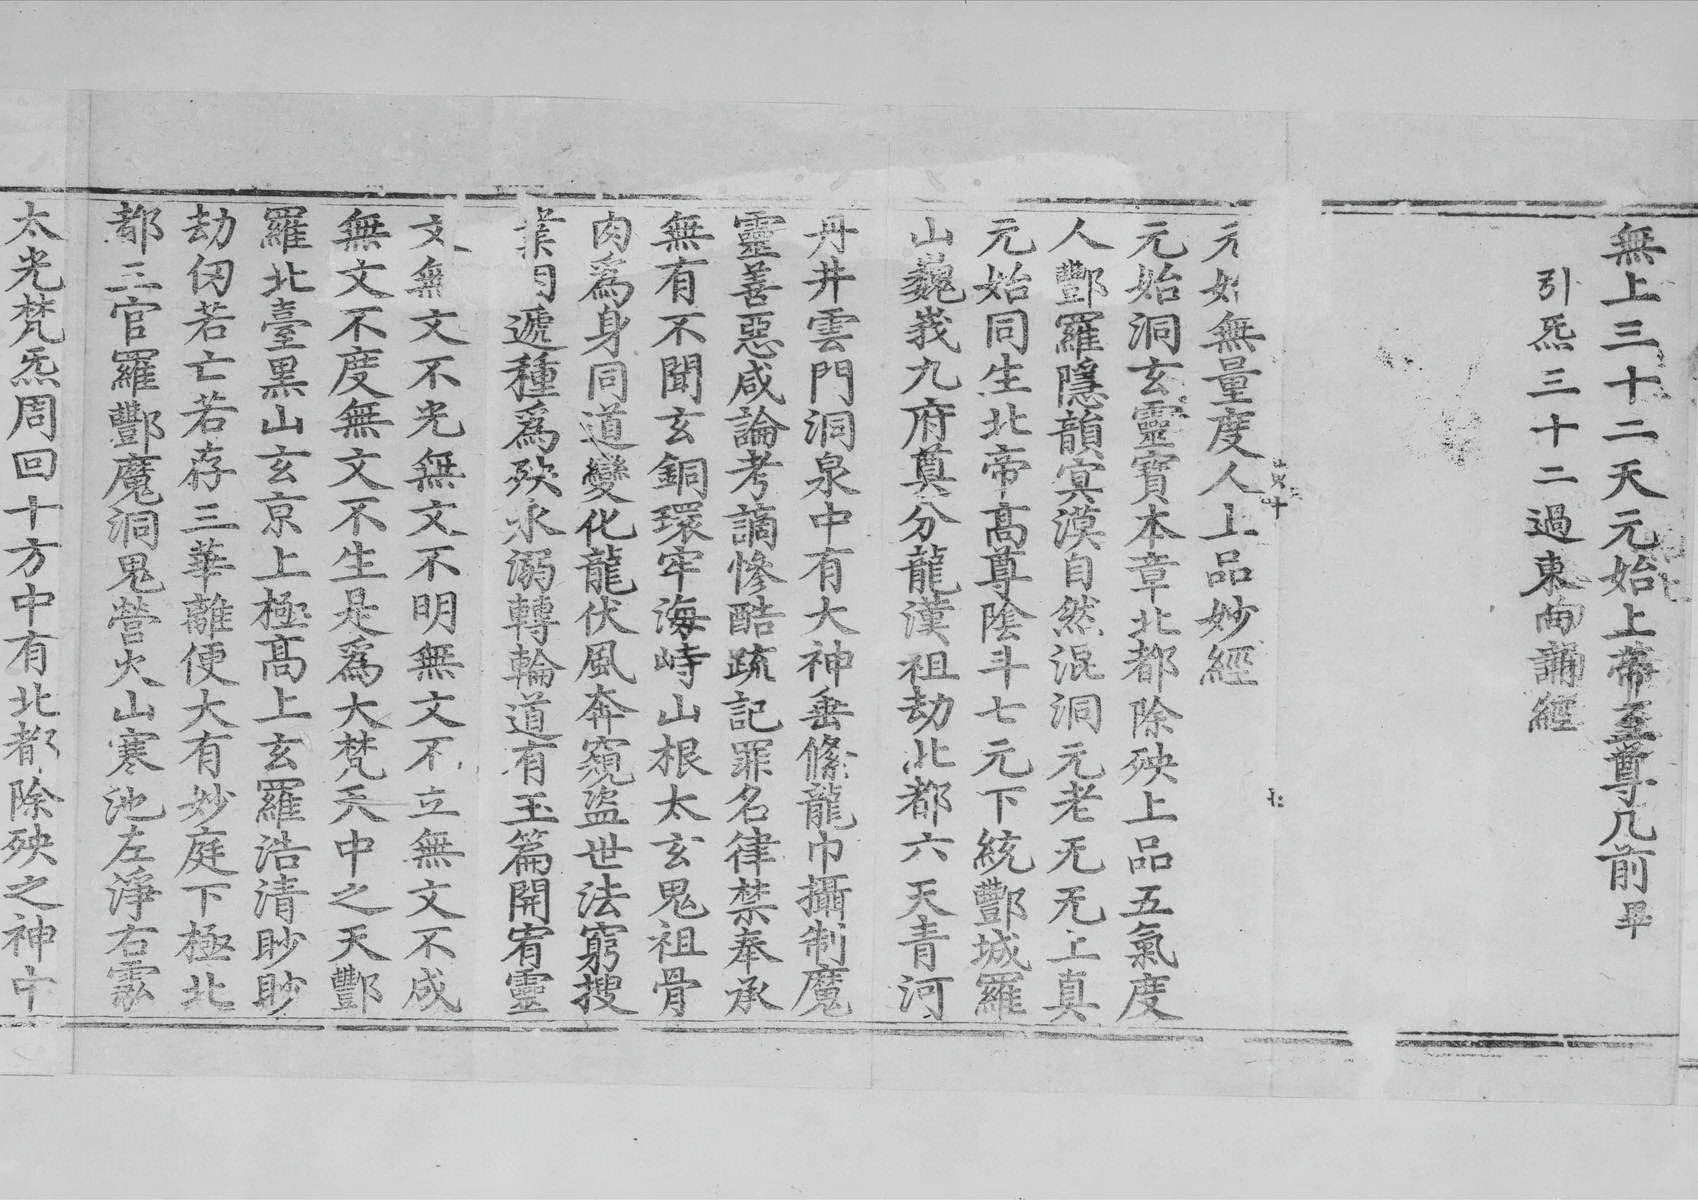 無上三十二天元始上帝至尊几前畢
引炁三十二過東向誦經
元始無量度人上品妙經
元始洞玄靈寶本章北都除殃上品五氣度
人酆羅隱韻冥漠自然混洞元老无无上真
元始同生北帝高尊陰斗七元下統酆城羅
山巍峩九府奠分龍漢祖劫北都六天青河
丹井雲門洞泉中有大神垂絛龍巾攝制魔
靈善惡咸論考謫慘酷疏記罪名律禁奉承
無有不聞玄銅環牢海峙山根太玄鬼祖骨
肉爲身同道變化龍伏風奔窺盜世法窮搜
業因遞種爲殃永溺轉輪道有玉篇開宥靈
文無文不光無文不明無文不立無文不成
無文不度無文不生是爲大梵天中之天酆
羅北臺黑山玄京上極高上玄羅浩清眇眇
劫仞若亡若存三華離便大有妙庭下極北
都三官羅酆魔洞鬼營火山寒池左淨右
太光梵炁周回十方中有北都除殃之神中